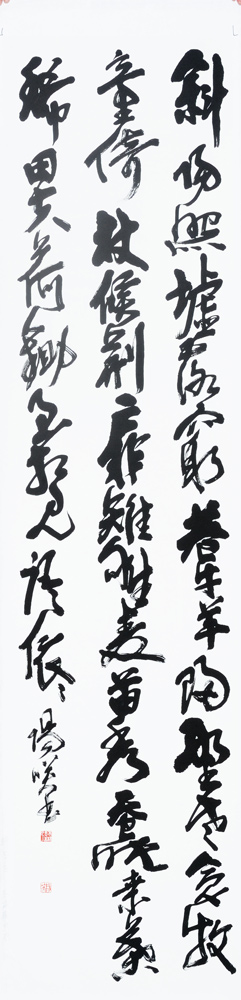 斜陽照墟落窮巷牛羊歸野老念牧
童倚杖候荊扉雉雊麥苗秀蚕眠桑葉
稀田夫荷鋤至相見語依々